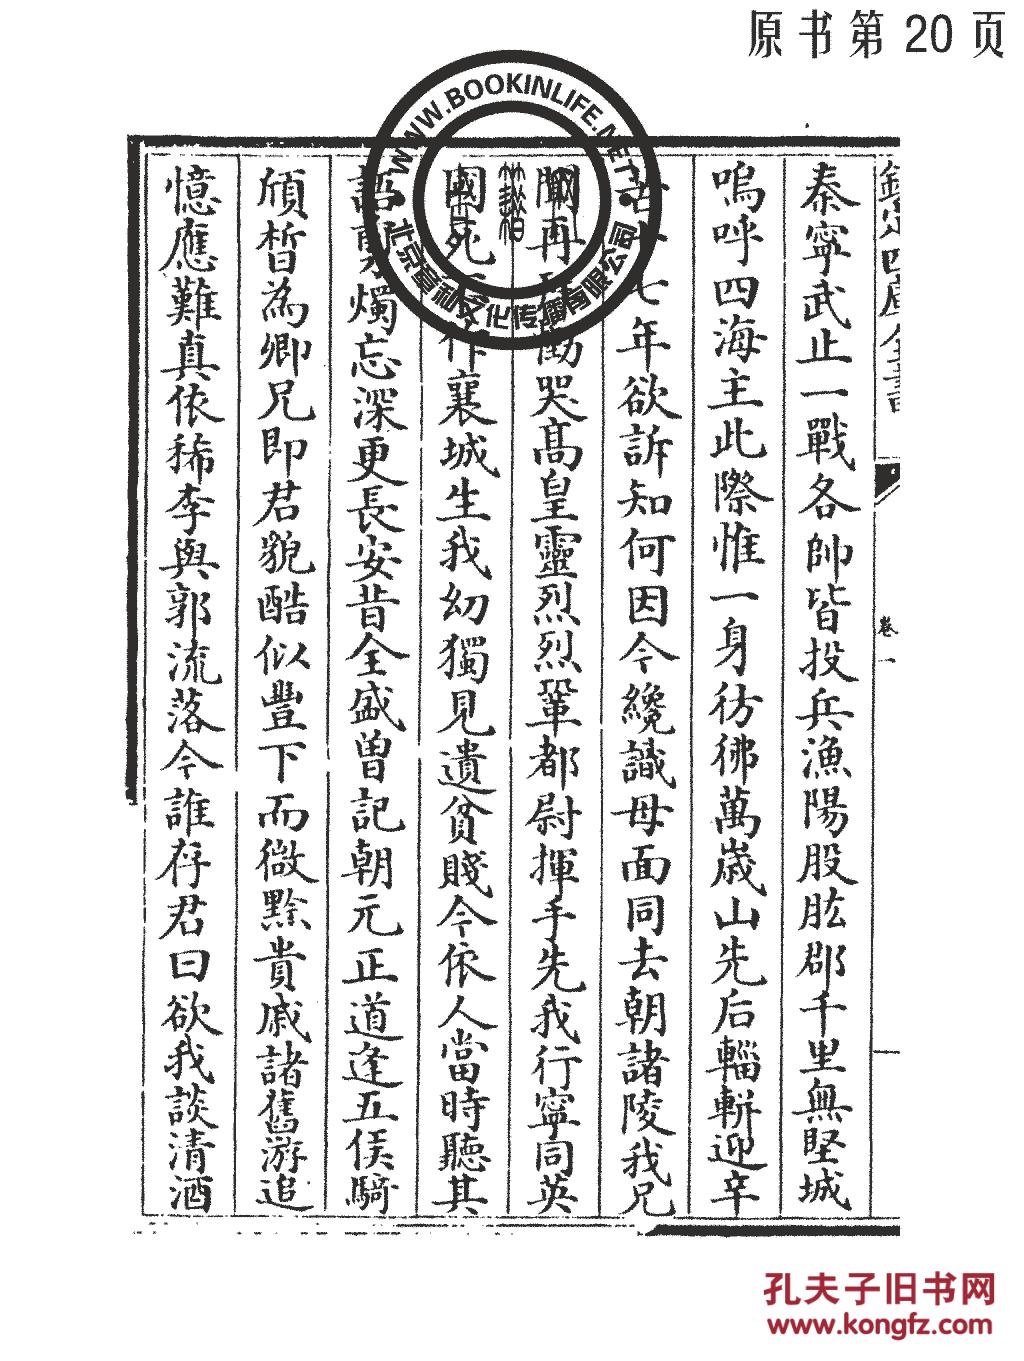 原书第20页
欽定四庫全書
卷一
秦寧武止一戰各帥皆投兵漁陽股肱郡千里無堅城
嗚呼四海主此際惟一身彷彿萬歲山先后輜軿迎辛
苦十七年欲訴知何因今纔識母面同去朝諸陵我兄
再勸哭高皇靈烈烈鞏都尉揮手先我行寧同英
國死不作襄城生我幼獨見遺貧賤今依人當時聽其
語剪燭忘深更長安昔全盛曾記朝元正道逢五侯騎
頎皙為卿兄即君貌酷似豐下而微黔貴戚諸舊游追
憶應難真依稀李與郭流落今誰存君曰欲我談清酒
WWW.BOOKINLIFE.NET
孔夫子旧书网
www.kongfz.com